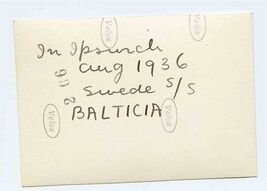 Velox
Velox
In Ipswich
Aug 1936
906
2
Swede S/S
BALTICIA
Velox
Velox
Velox